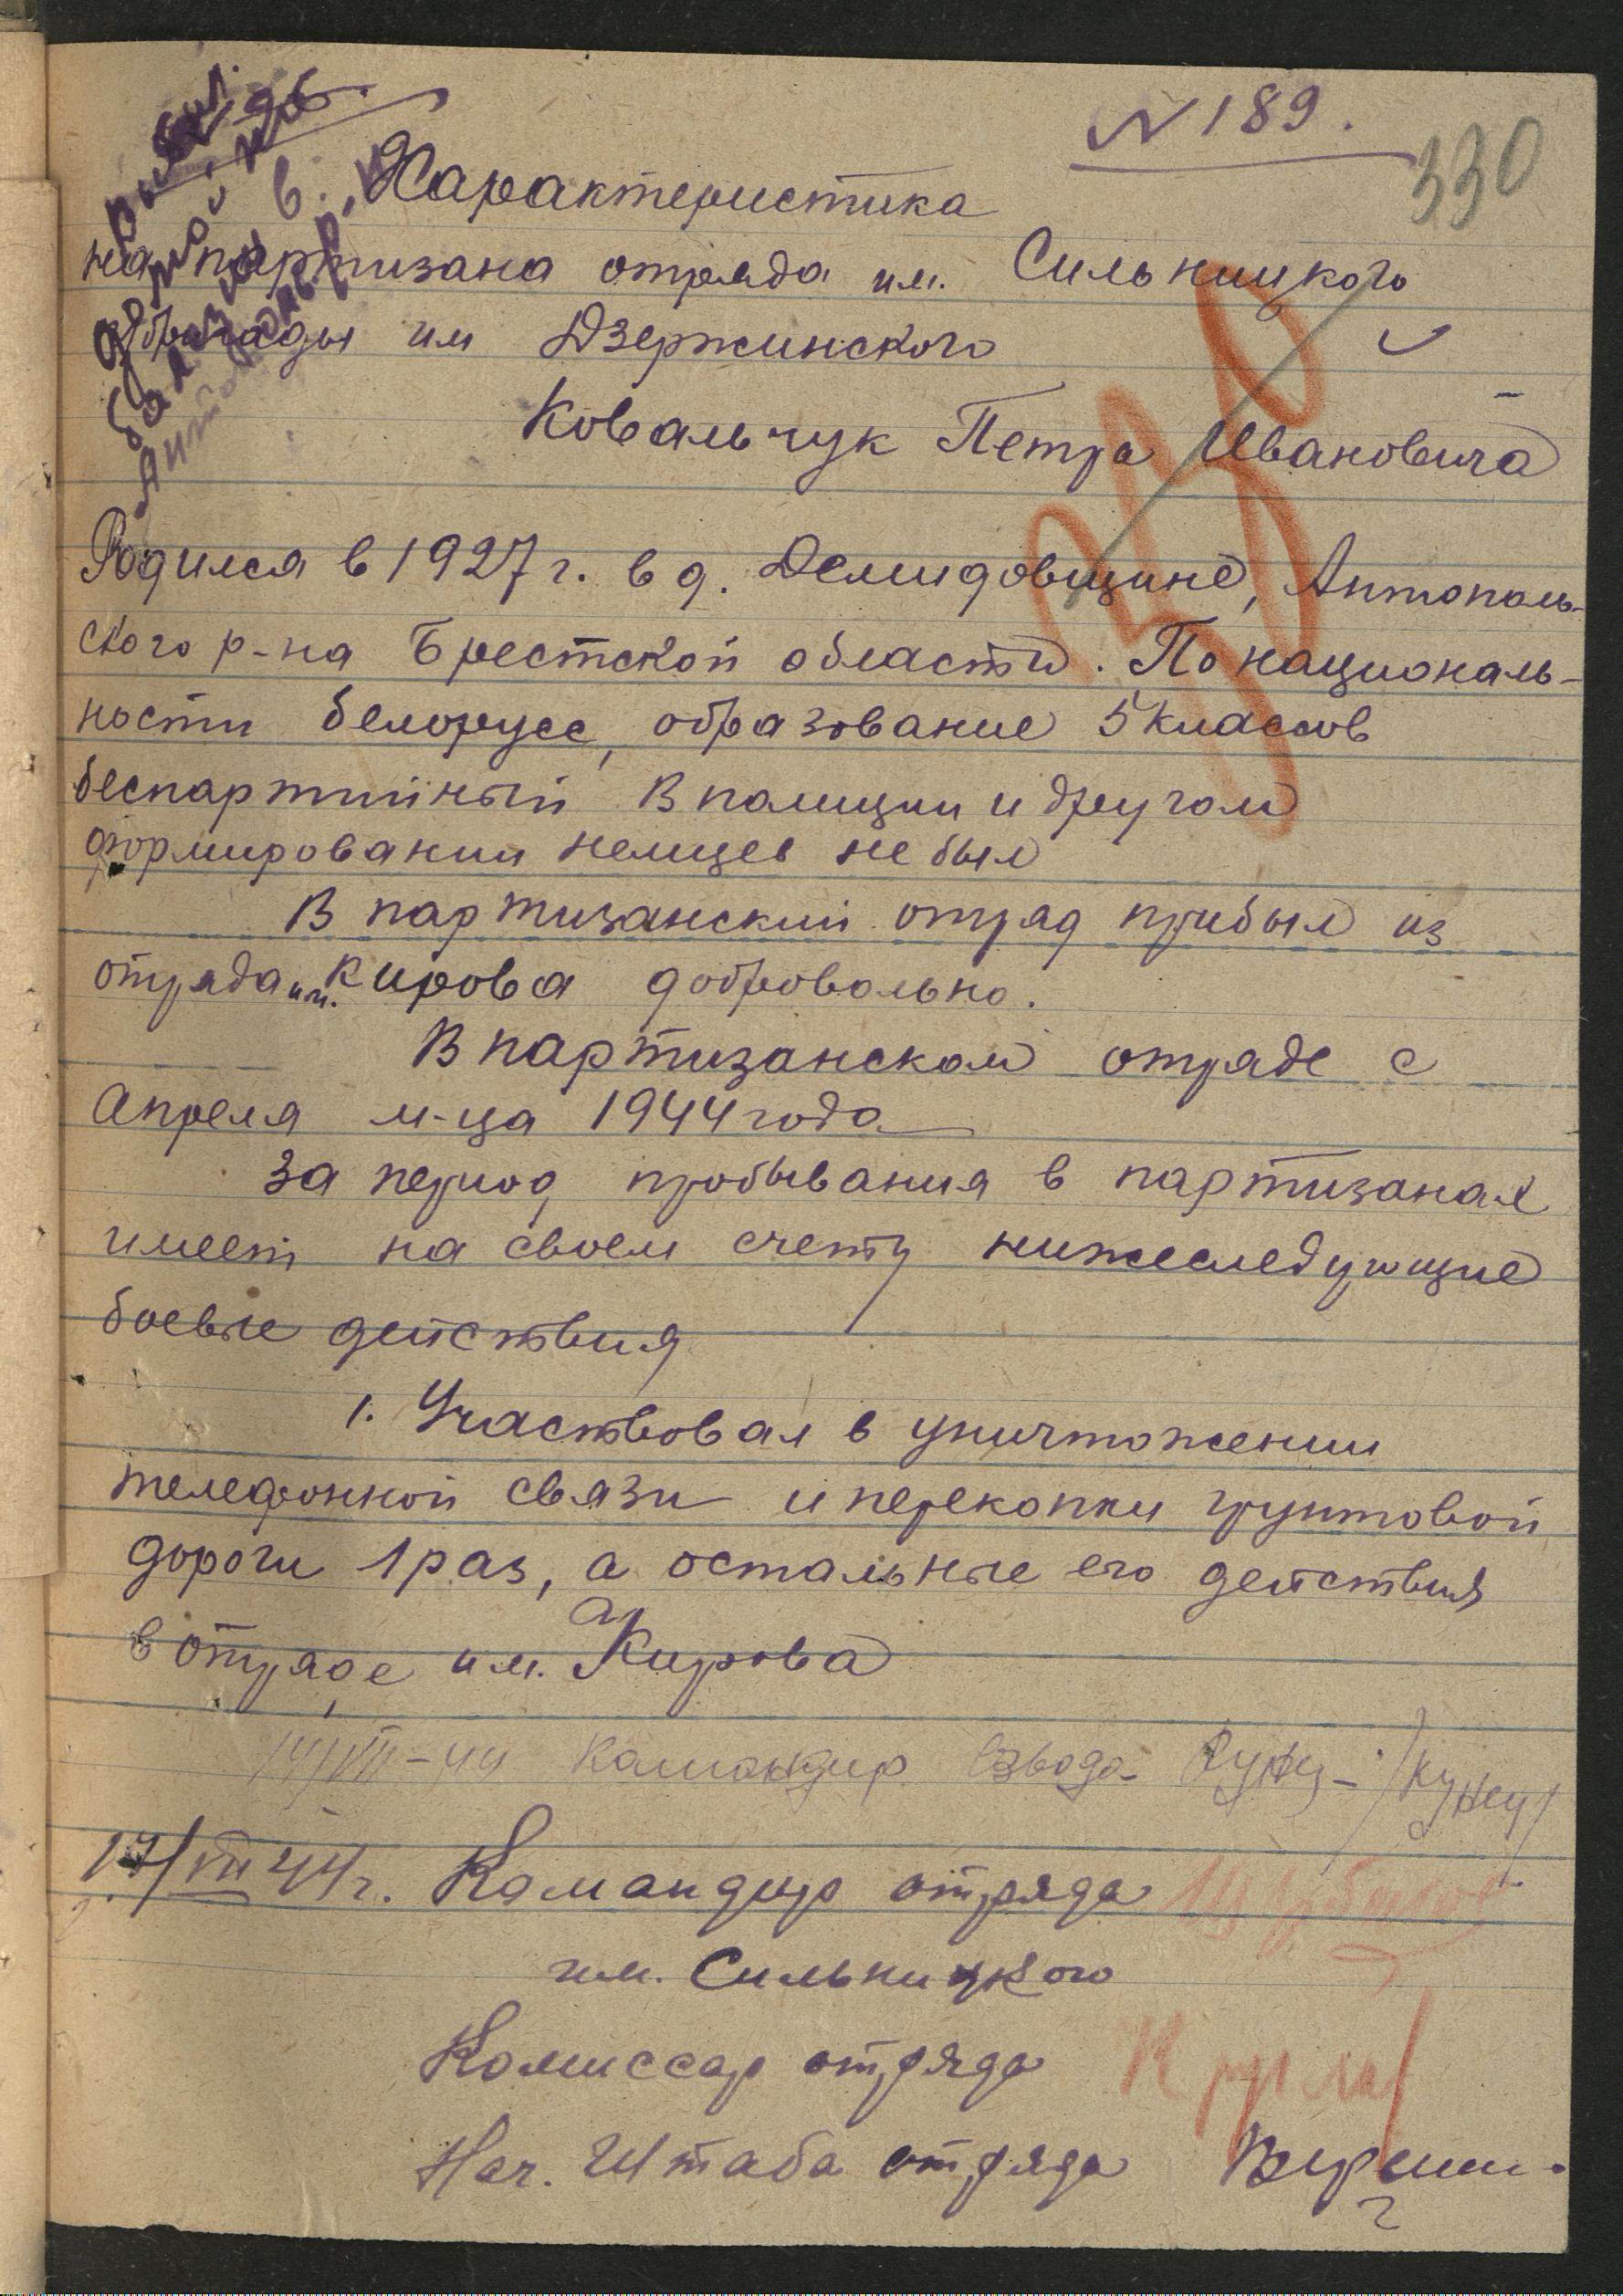 № 189.
330
Характеристика
на партизана отряда им. Сильницкого
бригады им Дзержинского
Ковальчук Петра Ивановича
Родился в 1927 г. в д. Демидовщине, Антополь-
ского р-на Брестской области. По националь-
ности белорусс, образование 5 классов
беспартийный В полиции и другом
формировании немцев не был
В партизанский отряд прибыл из
отряда им. Кирова добровольно.
В партизанском отряде с
Апреля м-ца 1944 года
За период пробывания в партизанах
имеет на своем счету нижеследующие
боевые действия
1. Участвовал в уничтожении
телефонной связи и перекопки грунтовой
дороги 1 раз, а остальные его действия
в отряде им. Кирова
14/VIII-44 Командир взвода /Кунец/
17/VIII 44 г. Командир отряда
им. Сильницкого
Комиссар отряда
Нач. Штаба отряда